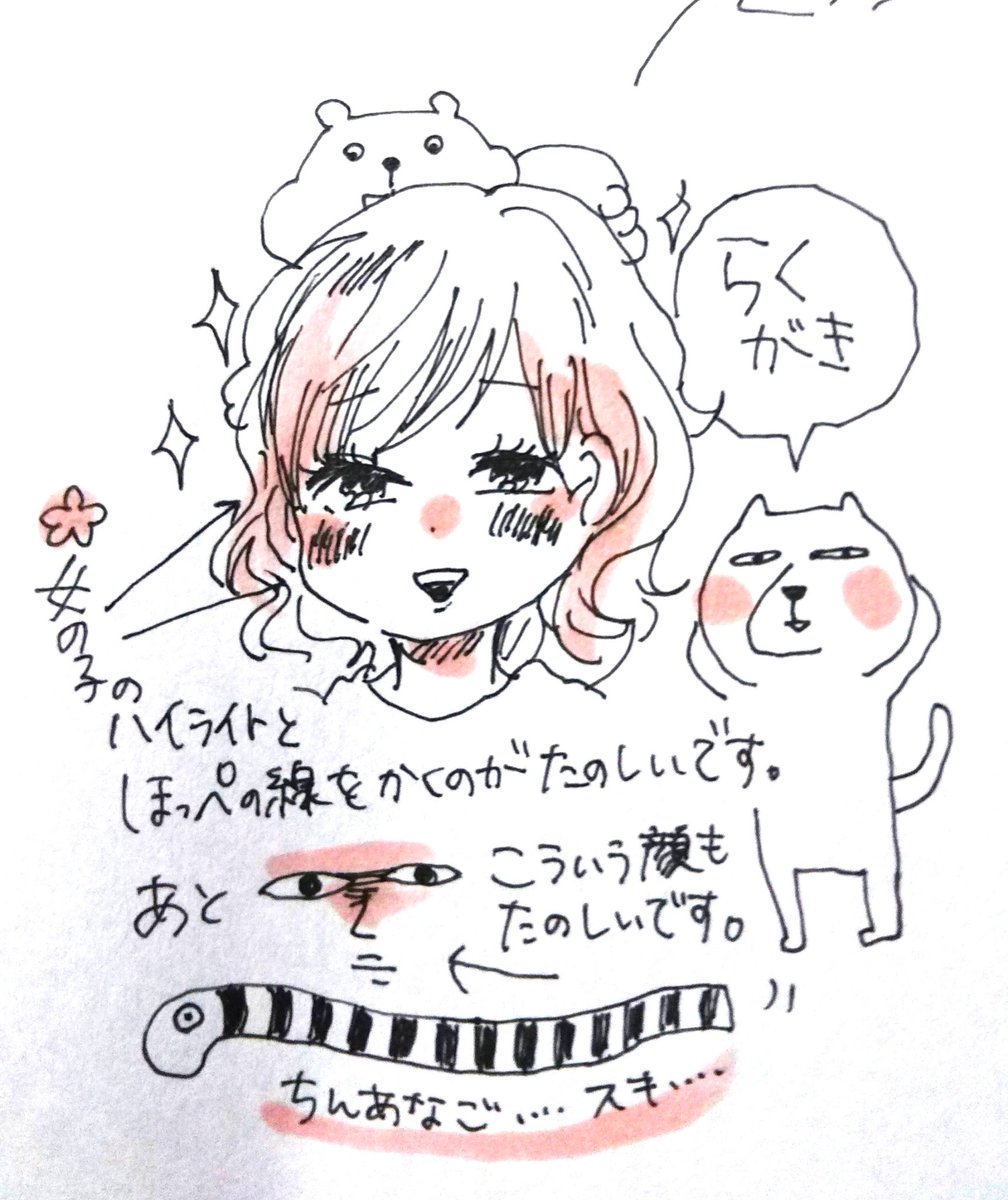 らく
がき
女の子の
ハイライトと
ほっぺの線をかくのがたのしいです。
あと
こういう顔も
たのしいです。
ちんあなご…. スキ….